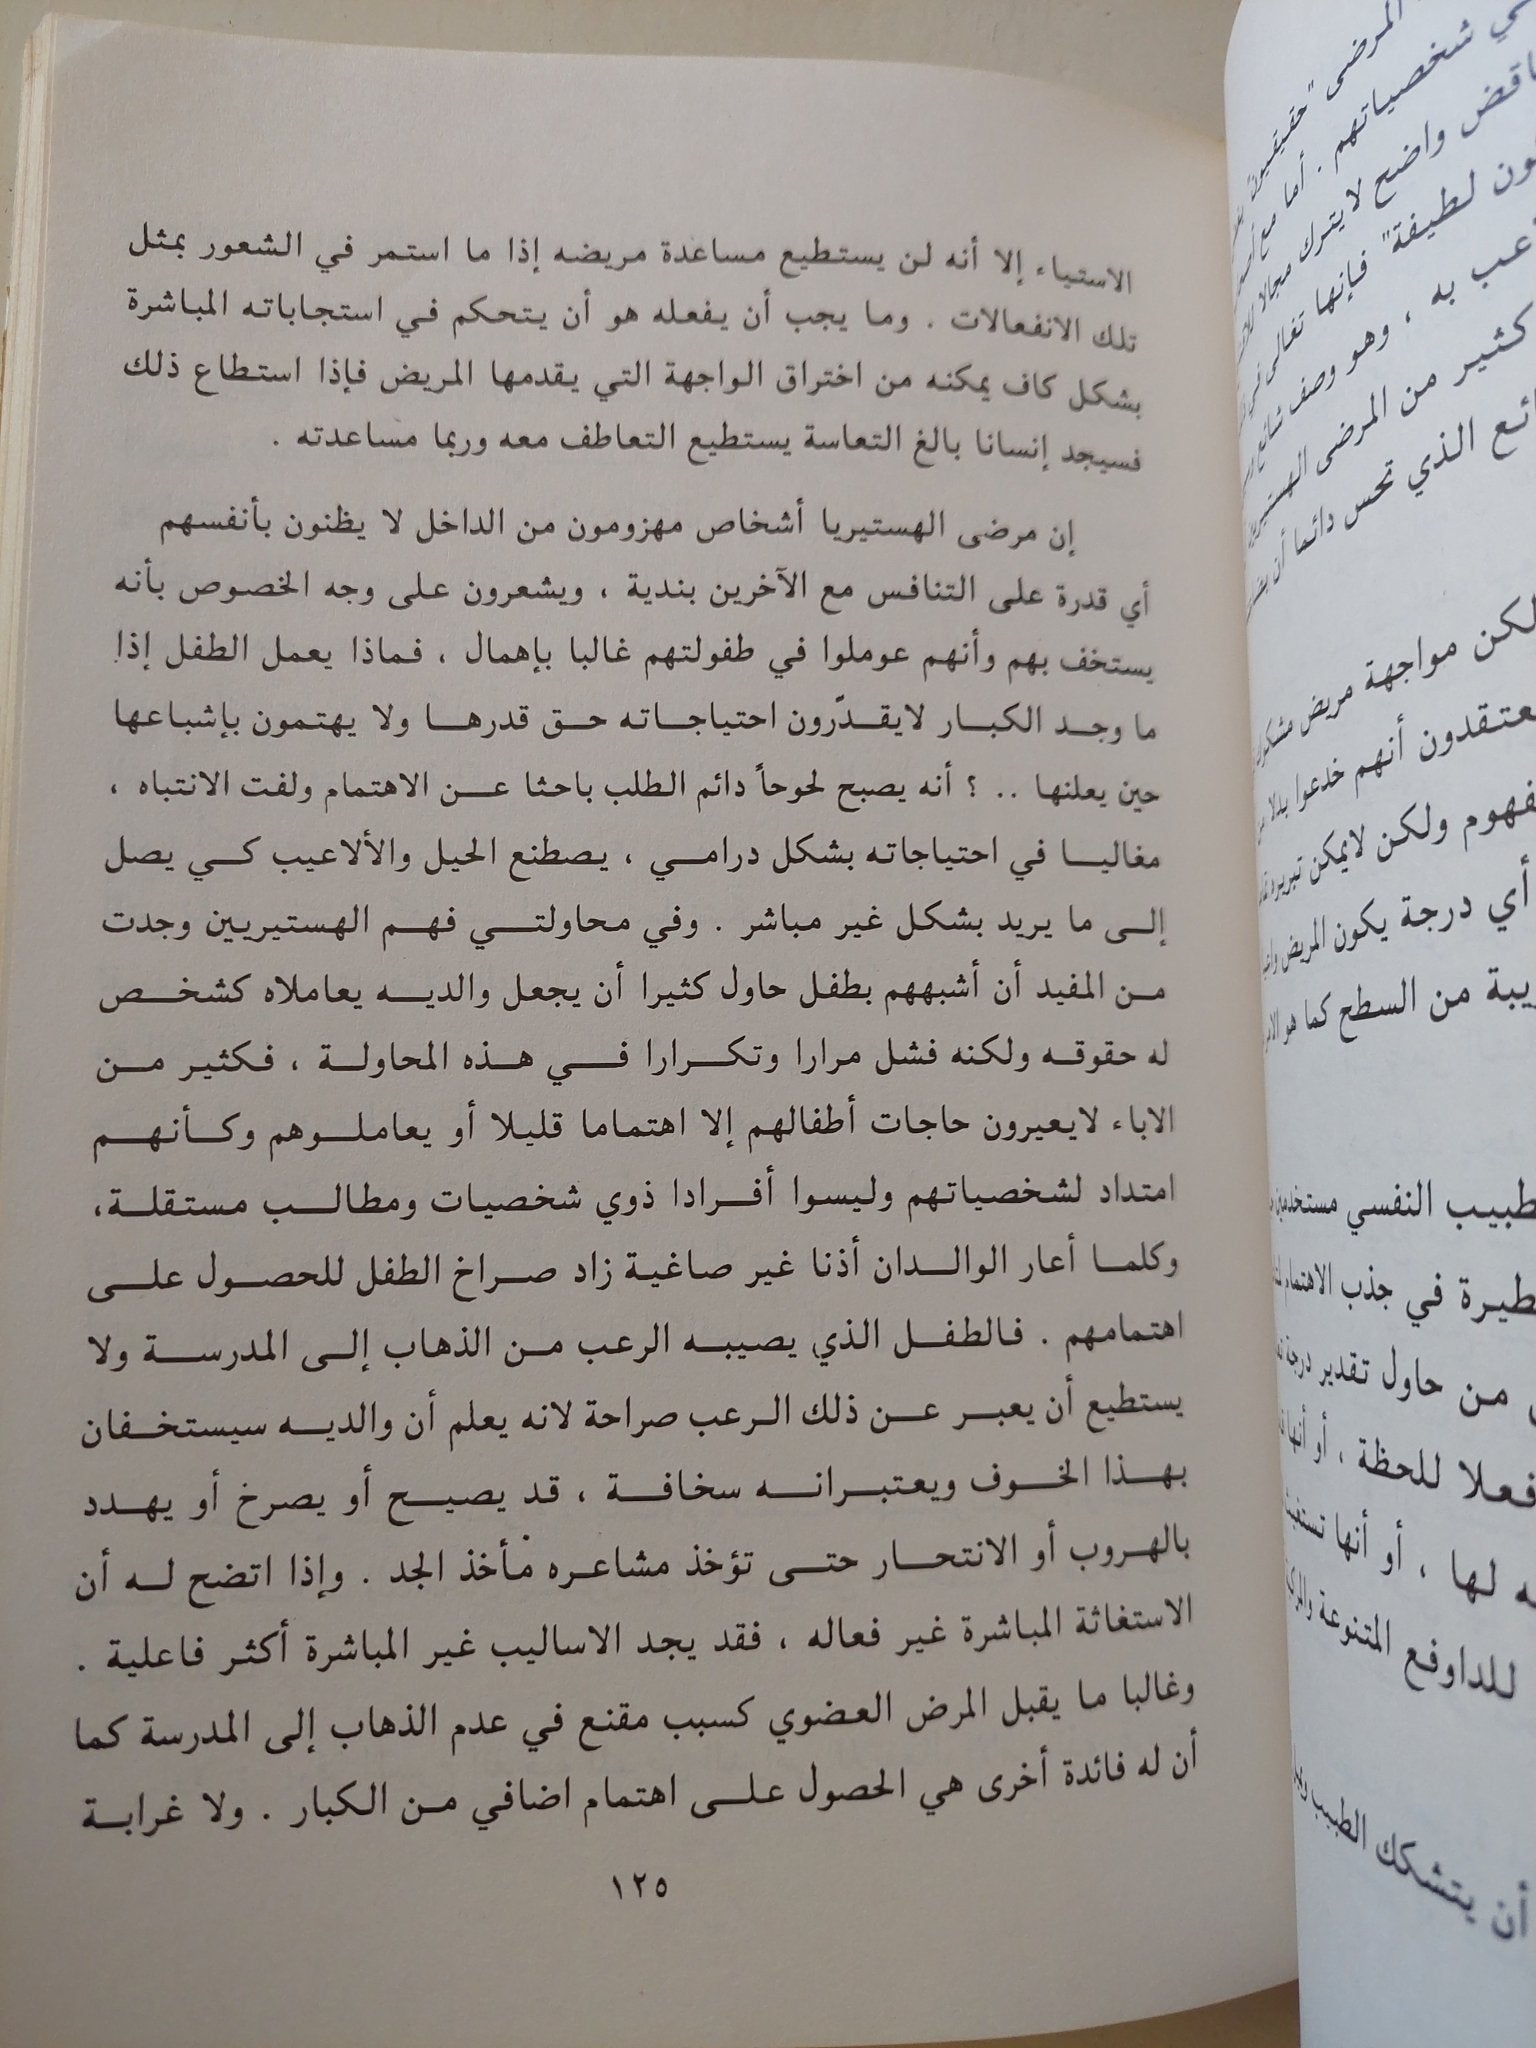 الاستياء إلا أنه لن يستطيع مساعدة مريضه إذا ما استمر في الشعور بمثل
تلك الانفعالات . وما يجب أن يفعله هو أن يتحكم في استجاباته المباشرة
بشكل كاف يمكنه من اختراق الواجهة التي يقدمها المريض فإذا استطاع ذلك
فسيجد إنسانا بالغ التعاسة يستطيع التعاطف معه وربما مساعدته .
إن مرضى الهستيريا أشخاص مهزومون من الداخل لا يظنون بأنفسهم
أي قدرة على التنافس مع الآخرين بندية ، ويشعرون على وجه الخصوص بأنه
يستخف بهم وأنهم عوملوا في طفولتهم غالبا بإهمال ، فماذا يعمل الطفل إذا
ما وجد الكبار لايقدّرون احتياجاته حق قدرها ولا يهتمون بإشباعها
حين يعلنها .. ؟ أنه يصبح لحوحاً دائم الطلب باحثا عن الاهتمام ولفت الانتباه ،
مغاليا في احتياجاته بشكل درامي ، يصطنع الحيل والألاعيب كي يصل
إلى ما يريد بشكل غير مباشر . وفي محاولتي فهم الهستيريين وجدت
من المفيد أن أشبههم بطفل حاول كثيرا أن يجعل والديه يعاملاه كشخص
له حقوقه ولكنه فشل مرارا وتكرارا في هذه المحاولة ، فكثير من
الاباء لايعيرون حاجات أطفالهم إلا اهتماما قليلا أو يعاملوهم وكأنهم
امتداد لشخصياتهم وليسوا أفرادا ذوي شخصيات ومطالب مستقلة،
وكلما أعار الوالدان أذنا غير صاغية زاد صراخ الطفل للحصول على
اهتمامهم . فالطفل الذي يصيبه الرعب من الذهاب إلى المدرسة ولا
يستطيع أن يعبر عن ذلك الرعب صراحة لانه يعلم أن والديه سيستخفان
بهذا الخوف ويعتبرانه سخافة ، قد يصيح أو يصرخ أو يهدد
بالهروب أو الانتحار حتى تؤخذ مشاعره مأخذ الجد . وإذا اتضح له أن
الاستغاثة المباشرة غير فعاله ، فقد يجد الاساليب غير المباشرة أكثر فاعلية .
وغالبا ما يقبل المرض العضوي كسبب مقنع في عدم الذهاب إلى المدرسة كما
أن له فائدة أخرى هي الحصول على اهتمام اضافي من الكبار . ولا غرابة
١٢٥
المرضى "حقيقيون"
شخصياتهم . أما مع
واضح لا يترك مجالا
لطيفة" فإنها تغالي في
به ، وهو وصف شائع
كثير من المرضى
الذي تحس دائما أن
مواجهة مريض
أنهم خدعوا بدلا
ولكن لايمكن تبريره
أي درجة يكون المريض
من السطح كما هو
النفسي
في جذب الاهتمام
من حاول تقدير درجة
فعلا للحظة ، أو أنها
لها ، أو أنها
للداوفع المتنوعة
أن يتشكك الطبيب